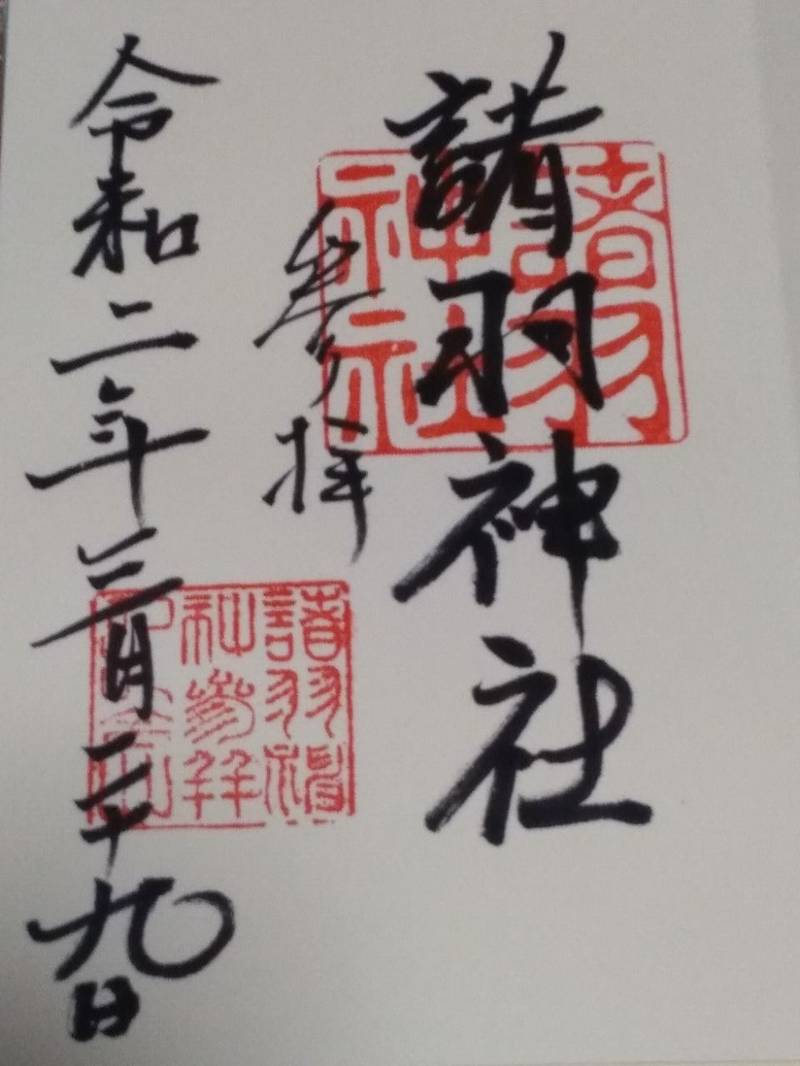 諸羽神社
参拝
令和二年三月二十九日
諸羽
神社
諸羽神
社参拝